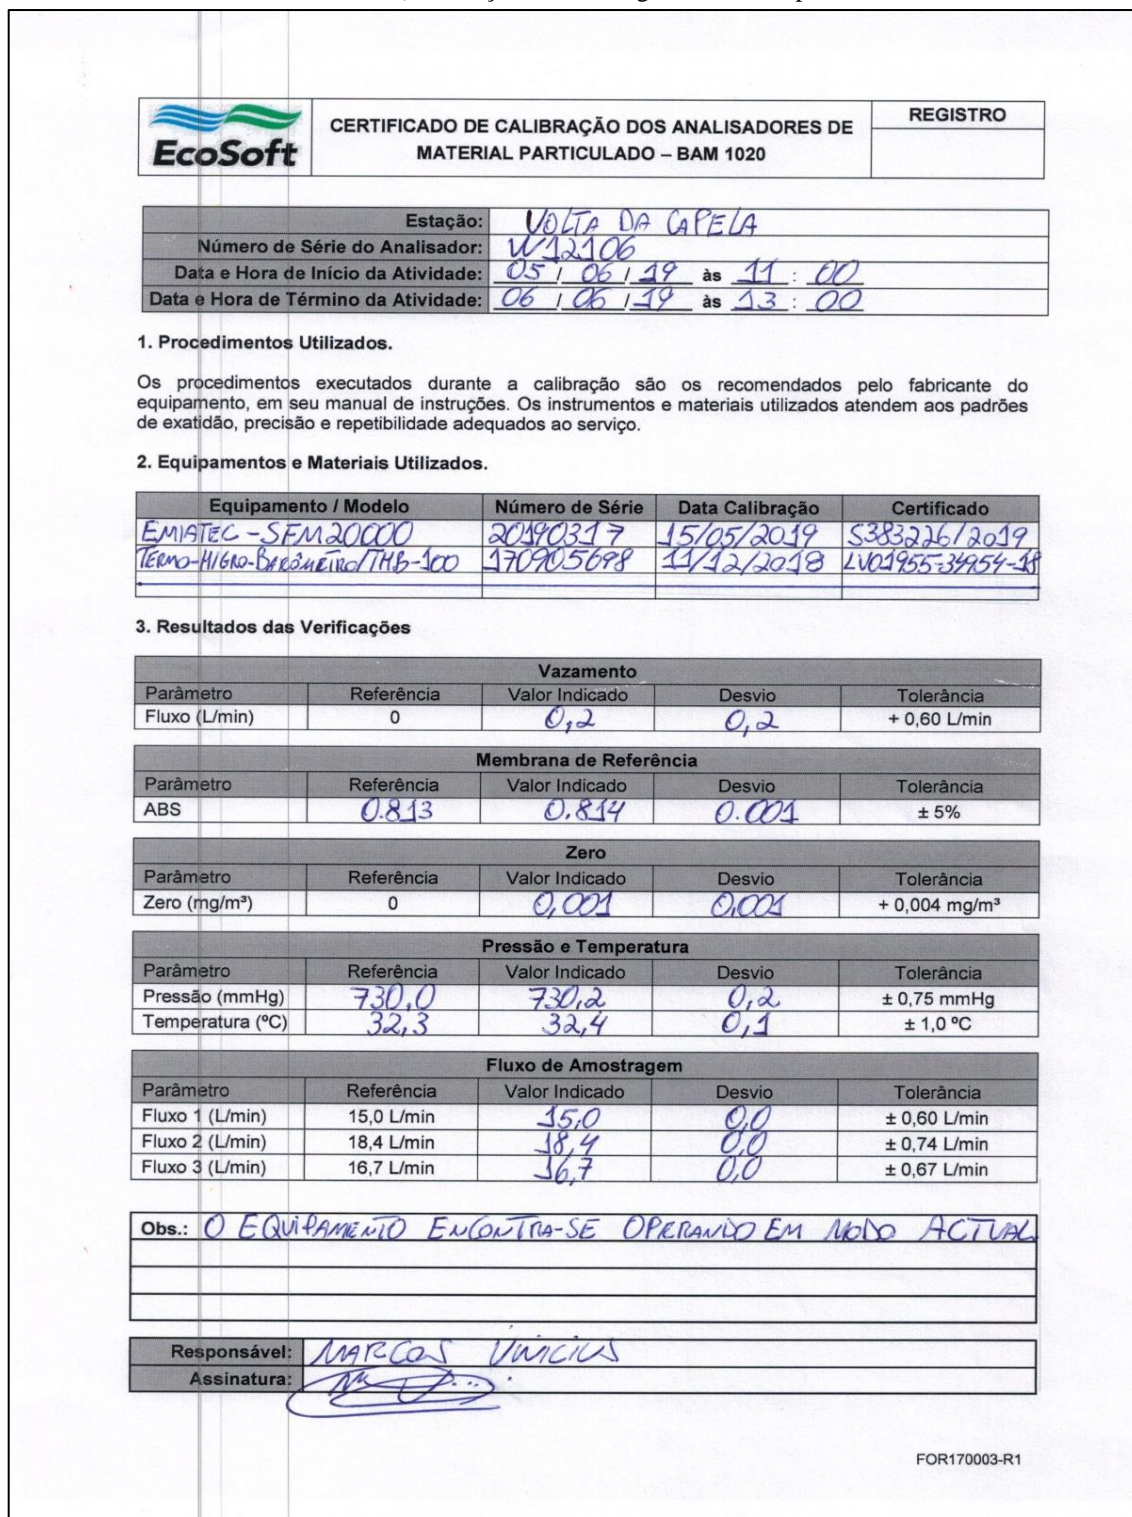 EcoSoft
CERTIFICADO DE CALIBRAÇÃO DOS ANALISADORES DE
MATERIAL PARTICULADO – BAM 1020
REGISTRO
Estação: VOLTA DA CAPELA
Número de Série do Analisador: W12106
Data e Hora de Início da Atividade: 05 / 06 / 19 às 11 : 00
Data e Hora de Término da Atividade: 06 / 06 / 19 às 13 : 00
1. Procedimentos Utilizados.
Os procedimentos executados durante a calibração são os recomendados pelo fabricante do
equipamento, em seu manual de instruções. Os instrumentos e materiais utilizados atendem aos padrões
de exatidão, precisão e repetibilidade adequados ao serviço.
2. Equipamentos e Materiais Utilizados.
Equipamento / Modelo Número de Série Data Calibração Certificado
EMIATEC - SFM20000 20190317 15/05/2019 S383226/2019
TERMO-HIGRO-BARÔMETRO/THB-100 170905698 11/12/2018 LV01955-34954-18
3. Resultados das Verificações
Vazamento
Parâmetro Referência Valor Indicado Desvio Tolerância
Fluxo (L/min) 0 0,2 0,2 + 0,60 L/min
Membrana de Referência
Parâmetro Referência Valor Indicado Desvio Tolerância
ABS 0.813 0.814 0.001 ± 5%
Zero
Parâmetro Referência Valor Indicado Desvio Tolerância
Zero (mg/m³) 0 0,001 0,001 + 0,004 mg/m³
Pressão e Temperatura
Parâmetro Referência Valor Indicado Desvio Tolerância
Pressão (mmHg) 730,0 730,2 0,2 ± 0,75 mmHg
Temperatura (ºC) 32,3 32,4 0,1 ± 1,0 ºC
Fluxo de Amostragem
Parâmetro Referência Valor Indicado Desvio Tolerância
Fluxo 1 (L/min) 15,0 L/min 15,0 0,0 ± 0,60 L/min
Fluxo 2 (L/min) 18,4 L/min 18,4 0,0 ± 0,74 L/min
Fluxo 3 (L/min) 16,7 L/min 16,7 0,0 ± 0,67 L/min
Obs.: O EQUIPAMENTO ENCONTRA-SE OPERANDO EM MODO ACTUAL
Responsável: MARCOS VINICIUS
Assinatura:
FOR170003-R1